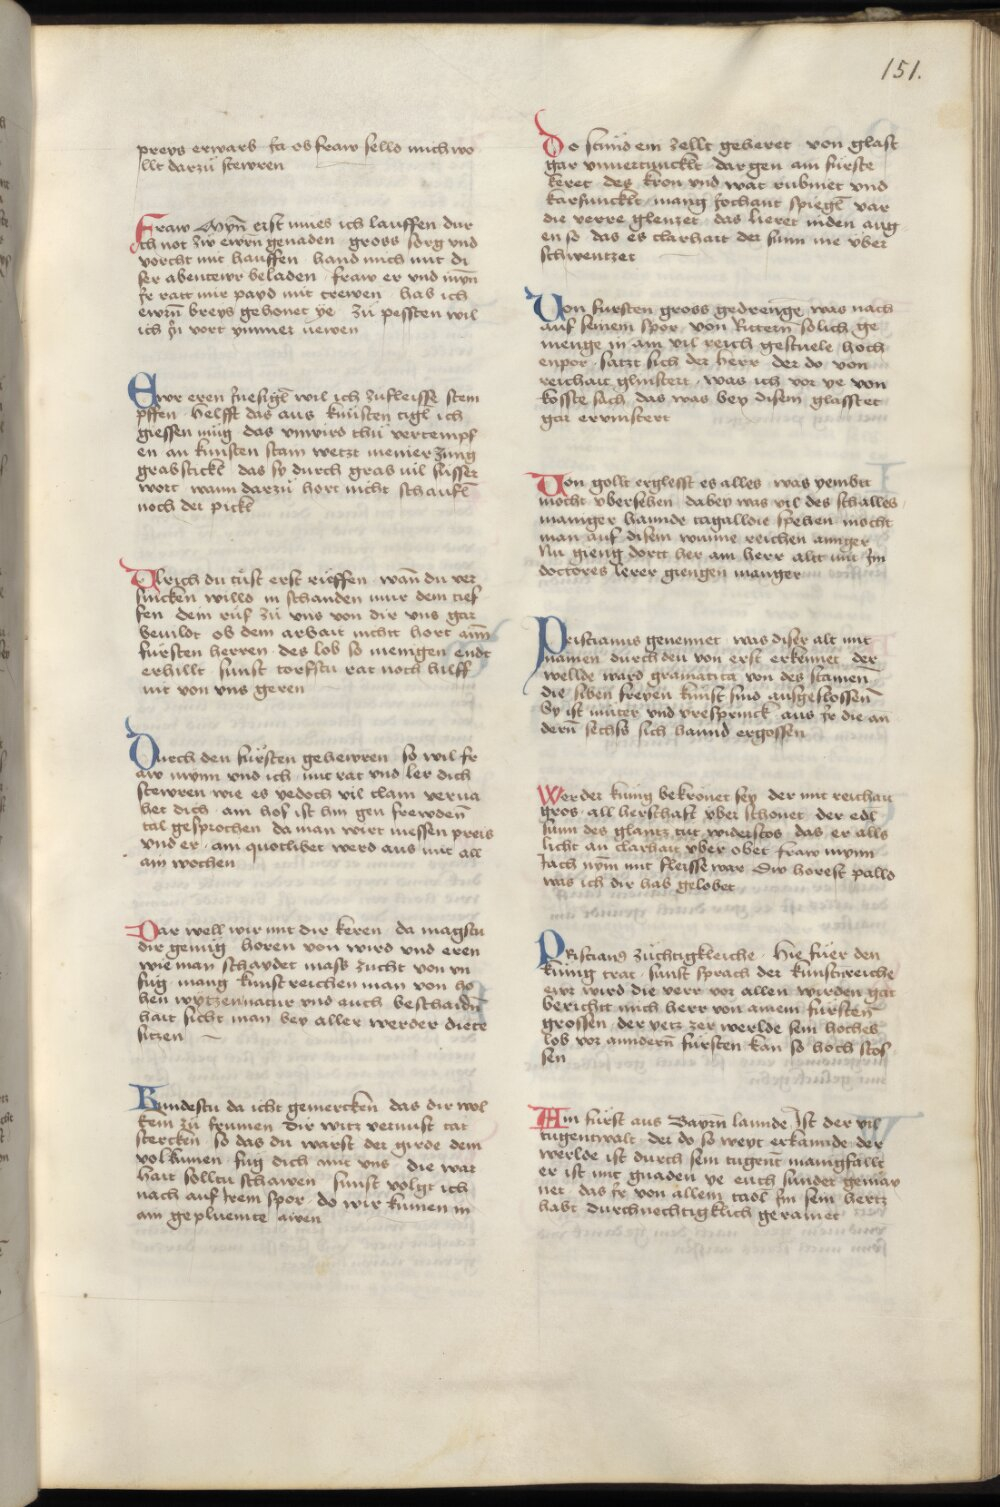 151.
preys erwarb · fa ob fraw sello mich wo
llt darzŭ stewren
Fraw Mynn̄ erst mues ich lauffen dur
ch not zw ewrn̄ genaden · gross sorg vnd
vorcht mit hauffen · hand mich mit di
ser abentewr beladen · fraw er vnd mynn̄
Ir ratt mir payd mit trewen · hab ich
ewrn̄ breys gehonet ye · zŭ pessten wil
ich in vort ymmer newen
Ewr eren Insigl̄ wil ich zufleisse stem
pffen · helfft das aus kŭnsten tigl̄ ich
giessen mŭg das vnwird thŭ vertempf
en an kunsten stam wetzt meiner zung
grabstickl̄ das sy durch grab vil sŭsser
wort wann darzŭ hort nicht schaufl̄
noch der pickl̄
Ulrich du tŭst erst rŭeffen · wan̄ du ver
sincken willd in schanden mur dem tief
fen · dem rŭf zŭ vns von dir vns gar
beuildt ob dem arbait nichtt hort aim̄
fŭrsten herren · des lob so menigen endt
erhillt · sunst torfstu rat noch hilff
nit von vns geren
Durch den fŭrsten gehewren · so wil fr
aw mynn vnd ich · mit rat vnd ler dich
stewren wie es yedoch vil clain verua
het dich · am hof ist hin gen frewden̄
tal gesprochen da man wirt messen preis
vnd er · am quotlibet werd aus mit all
am wochen
Dar well wir mit dir keren · da magstu
dir genŭg horen von wird vnd eren
wie man schaydet mass zucht von vn
fŭg · mang kunst reichen man von ho
hen wytzen natur vnd auch beschaidn̄
hait sicht man bey aller werder diete
sitzen
Kundestu da icht gemercken das dir wol
kem zŭ frumen dir witz vernŭst tat
stercken · so das du warst der girde dem
volkumen · fŭg dich mit vns · die war
hait solltu schawen · sunst volgt ich
nach auf Irem spor · do wir kumen in
ain gepluemte awen
Do stŭnd ein zellt geheret · von glast
gar vnuertunckt · dar gen ain fŭrste
keret · des kron vnd wat rubinet vnd
karfunckt · mang Jochant spiegl̄ var
die verre glenzet · das lieret in den aug
en so · das es clarhait der sunn nie vber
schwentzet
Von fursten gross gedrenge was nach
auf seinem spor · von Rittern̄ solich ge
menge in ain vil reich gestuele · hoch
enpor · satzt sich der herr · der do von
reichait glinstert · was ich vor ye von
kosste sach das was bey disem glasstet
gar ervinstert
Von gollt erglesst es alles · was yembtt
mocht vbersehen · dabey was vil des schalles ·
maniger hannde tagalldie spehen mocht
man auf disem wunne reichen annger
Nu gieng dortt her ain herr altt mit Im
doctores lerer giengen manger
Priscianus genennet · was diser alt mit
namen durch den von erst erkennet der
wellde ward gramatica von des stamen̄
die siben freyen kunst sind ausgeslossen̄
Sy ist muter vnd vrsprinck · aus Ir die an
dern̄ sechss sich hannd ergossen
Wer der kŭnig bekronet sey · der mit reichait
gros · all herschafft vber schonet · der edl̄
sunn des glantz tut widerstos das er alls
liecht an clarhait vber obet · fraw mynn
Jach nym̄ mit fleisse war · Dw horest pallo
was ich dir hab gelobet
Priscians zŭchtigkleiche · hie fŭer den
kŭnig trat · sunst sprach der kunstreiche
ewr wird die verr vor allen wirden gat
berichtt mich herr von ainem fursten̄
grossen · der yetz zer werlde sein hoches
lob vor anndern̄ fŭrsten kan so hoch stos
sen
Ain fŭrst aus Bayrn̄ lannde Ist der vil
tugentwalt · der do so weyt erkannde · der
werlde ist durch sein tugent̄ manigfallt
er ist mit gnaden ye euch sunder gemay
net · das Ir von allem tadl Im sein hertz
habt durchnechtigklich gerainet